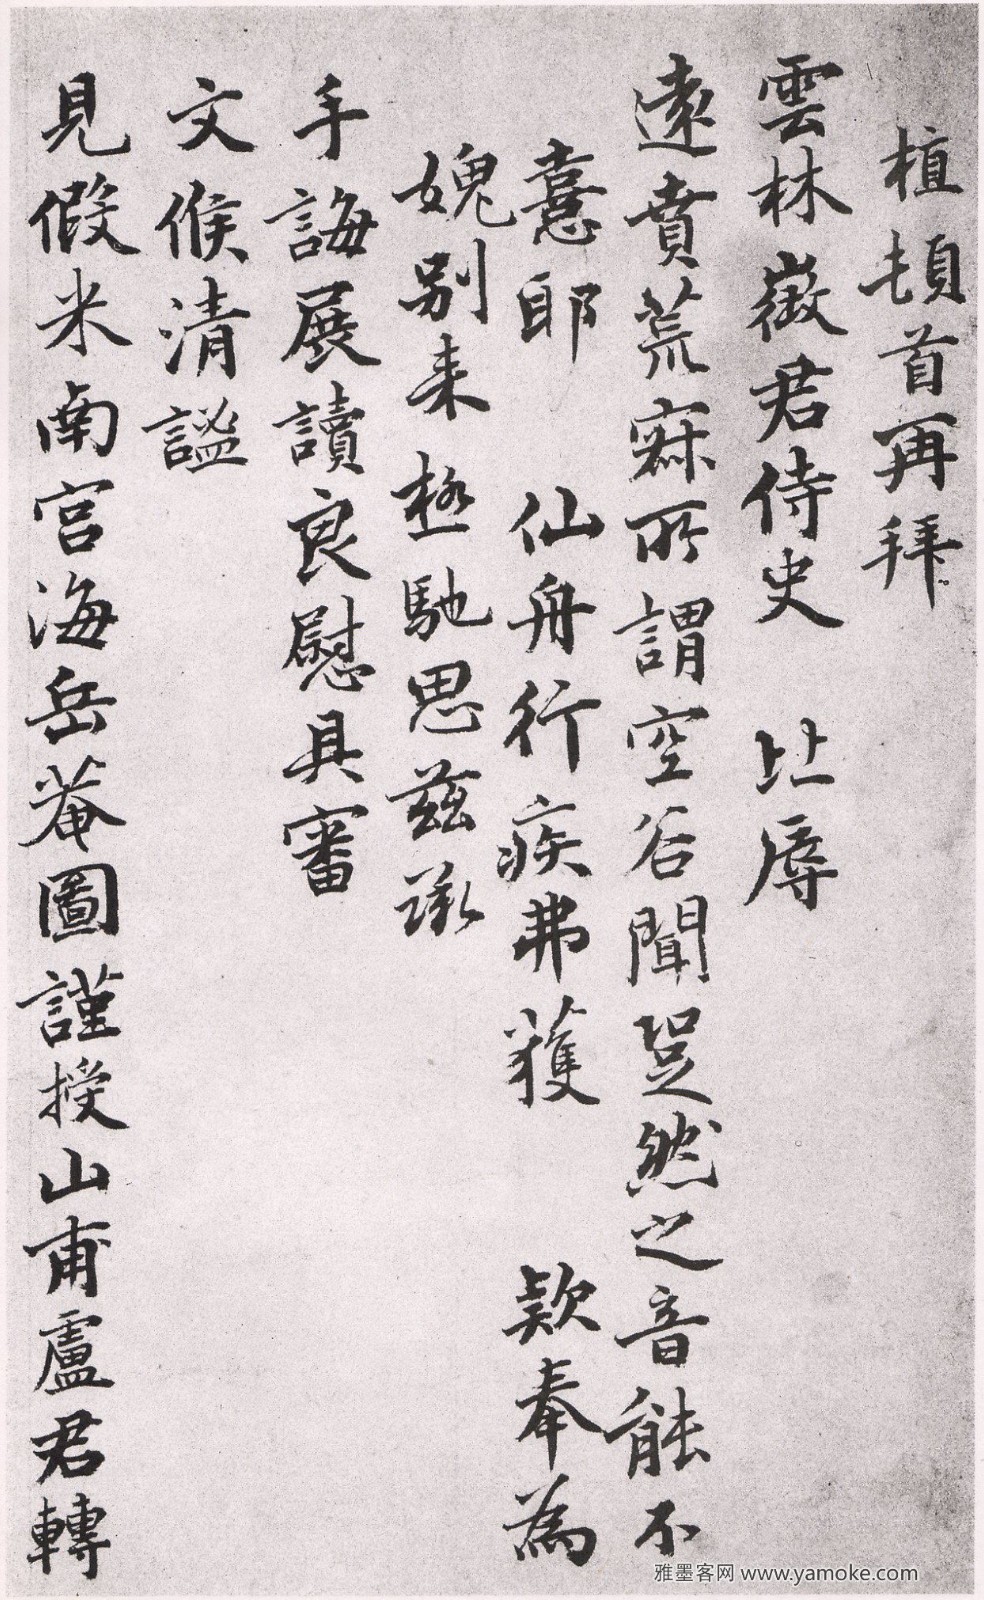 植頓首再拜
雲林徵君侍史 比辱
遠賁荒寐所謂空谷聞跫然之音能不
憙耶 仙舟行疾弗獲 款奉為
媿別来極馳思茲承
手誨展讀良慰具審
文候清謐
見假米南宮海岳菴圖謹授山甫盧君轉
雅墨客网 www.yamoke.com